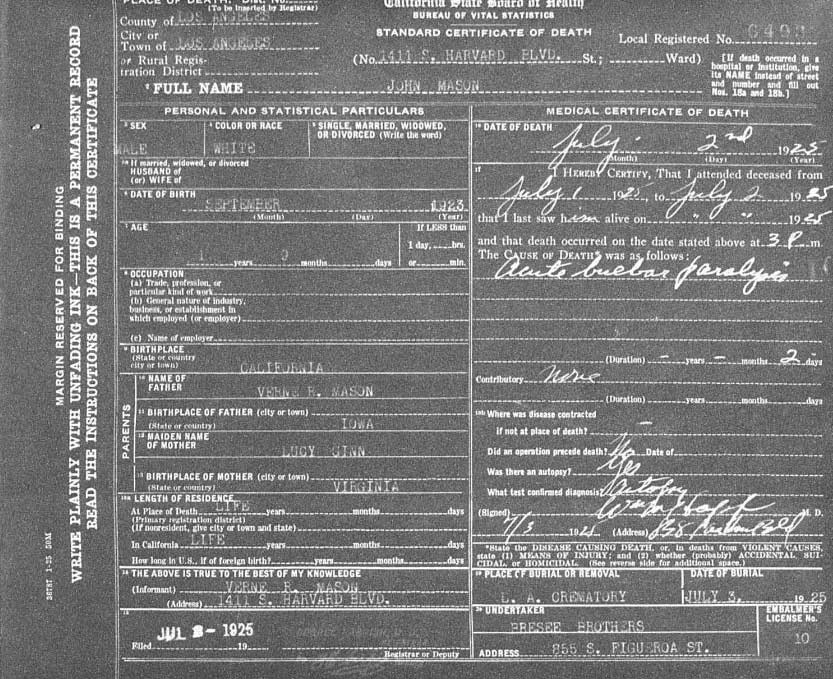 PLACE OF DEATH. Dist. No.
(To be inserted by Registrar)
County of LOS ANGELES
City or
Town of LOS ANGELES
or Rural Regis-
tration District
California State Board of Health
BUREAU OF VITAL STATISTICS
STANDARD CERTIFICATE OF DEATH
Local Registered No.
(No. 1411 S. HARVARD BLVD. St.; Ward)
[If death occurred in a
hospital or institution, give
its NAME instead of street
and number and fill out
Nos. 18a and 18b.]
FULL NAME JOHN MASON
MARGIN RESERVED FOR BINDING
WRITE PLAINLY WITH UNFADING INK—THIS IS A PERMANENT RECORD
READ THE INSTRUCTIONS ON BACK OF THIS CERTIFICATE
1-25 50M
PERSONAL AND STATISTICAL PARTICULARS
3 SEX
MALE
4 COLOR OR RACE
WHITE
5 SINGLE, MARRIED, WIDOWED,
OR DIVORCED (Write the word)
5a If married, widowed, or divorced
HUSBAND of
(or) WIFE of
6 DATE OF BIRTH
SEPTEMBER 1923
(Month) (Day) (Year)
7 AGE
1 years 9 months days
If LESS than
1 day, hrs.
or min.
8 OCCUPATION
(a) Trade, profession, or
particular kind of work
(b) General nature of industry,
business, or establishment in
which employed (or employer)
(c) Name of employer
9 BIRTHPLACE
(State or country
city or town) CALIFORNIA
PARENTS
10 NAME OF
FATHER VERNE R. MASON
11 BIRTHPLACE OF FATHER (city or town)
(State or country) IOWA
12 MAIDEN NAME
OF MOTHER LUCY GINN
13 BIRTHPLACE OF MOTHER (city or town)
(State or country) VIRGINIA
LENGTH OF RESIDENCE
At Place of Death LIFE years months days
(Primary registration district)
(If nonresident, give city or town and state)
In California LIFE years months days
How long in U.S., if of foreign birth? years months days
14 THE ABOVE IS TRUE TO THE BEST OF MY KNOWLEDGE
(Informant) VERNE R. MASON
(Address) 1411 S. HARVARD BLVD.
15
JUL 3-1925
Filed 19
Registrar or Deputy
MEDICAL CERTIFICATE OF DEATH
16 DATE OF DEATH
July 2nd 1925
(Month) (Day) (Year)
17
I HEREBY CERTIFY, That I attended deceased from
July 1 1925, to July 2 1925
that I last saw him alive on " " 1925
and that death occurred on the date stated above at 3 P m.
The CAUSE OF DEATH was as follows:
Acute bulbar paralysis
(Duration) - years - months 2 days
Contributory None
(Duration) years months days
18b Where was disease contracted
if not at place of death? -
Did an operation precede death? No Date of
Was there an autopsy? Yes
What test confirmed diagnosis? Autopsy
(Signed) M. D.
7/3 192 (Address)
*State the DISEASE CAUSING DEATH, or, in deaths from VIOLENT CAUSES,
state (1) MEANS OF INJURY; and (2) whether (probably) ACCIDENTAL, SUI-
CIDAL, or HOMICIDAL. (See reverse side for additional space.)
19 PLACE OF BURIAL OR REMOVAL
L. A. CREMATORY
DATE OF BURIAL
JULY 3, 1925
20 UNDERTAKER
BRESEE BROTHERS
ADDRESS 855 S. FIGUEROA ST.
EMBALMER'S
LICENSE No.
10